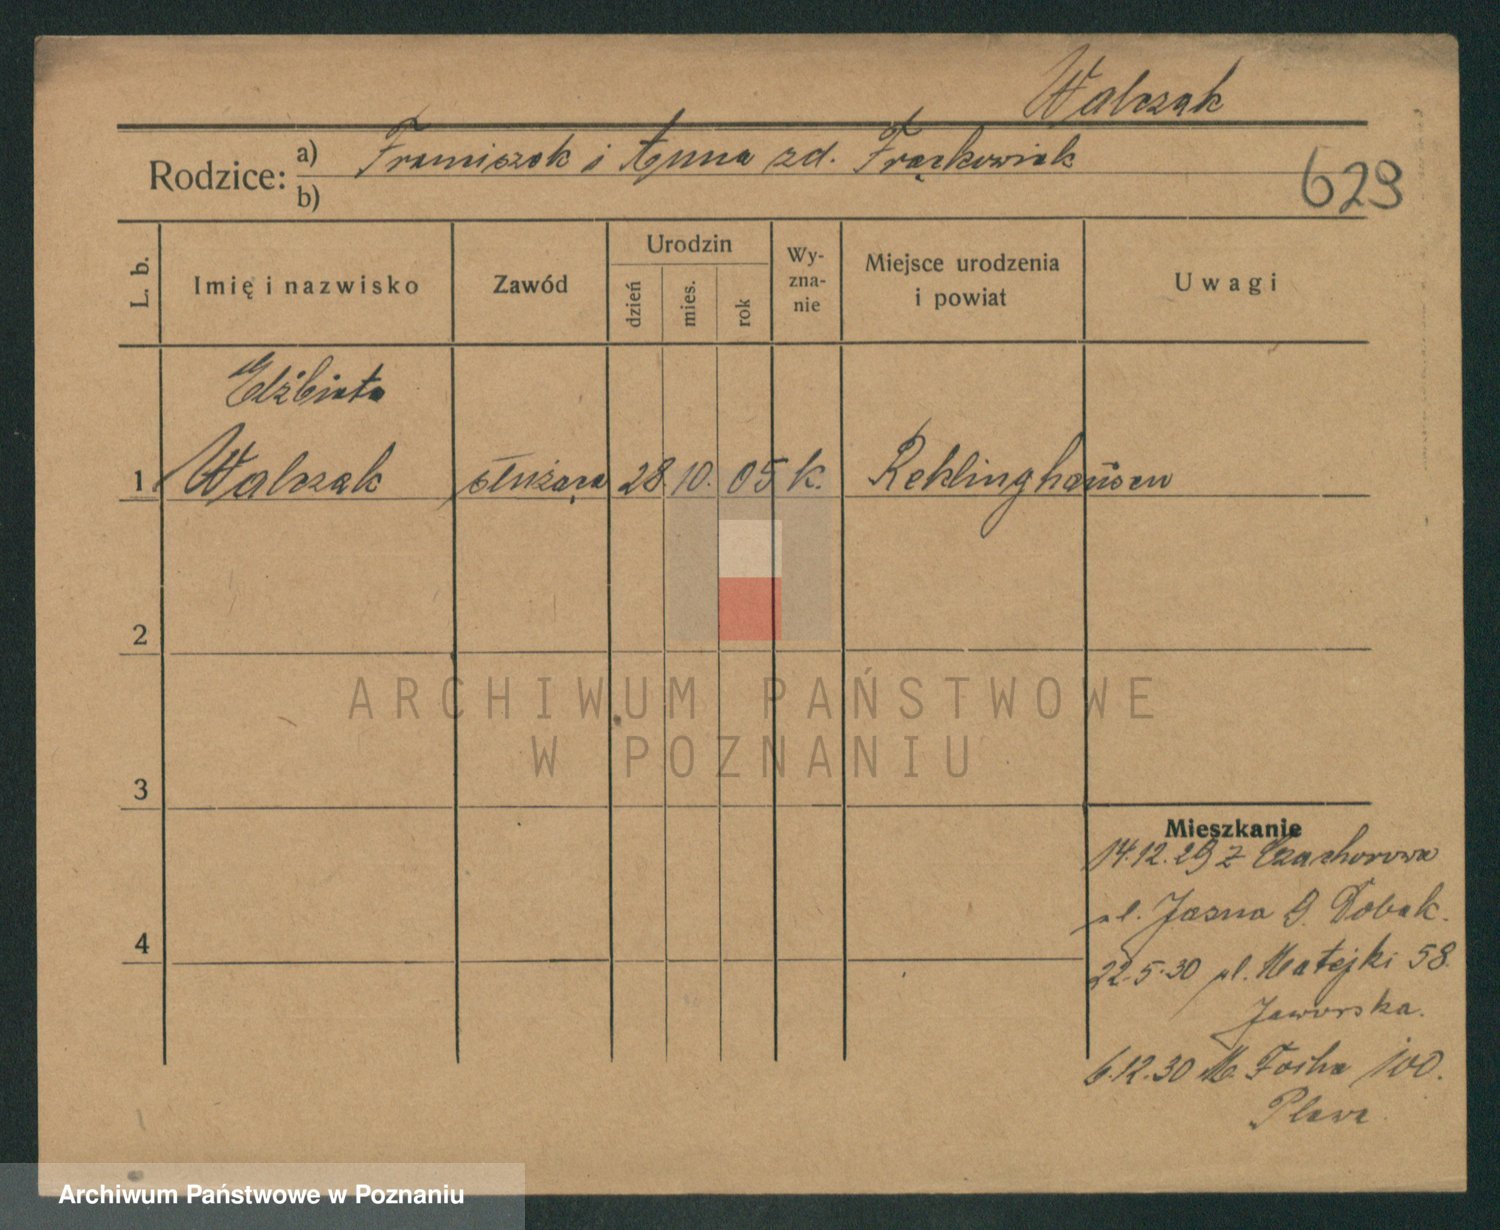 Walczak
Rodzice: a) Franciszek i Anna zd. Frąckowiak
b)
629
L. b.
Imię i nazwisko
Zawód
Urodzin
dzień
mies.
rok
Wy-
zna-
nie
Miejsce urodzenia
i powiat
Uwagi
Elżbieta
1 Walczak służąca 28. 10. 05 k. Reklinghausen
2
3
4
Mieszkanie
14.12.29 z Czachorowa
ul. Jasna 9. Dobak.
22.5.30 ul. Matejki 58.
Jaworska.
6.12.30 M. Focha 100.
ARCHIWUM PAŃSTWOWE
W POZNANIU
Archiwum Państwowe w Poznaniu